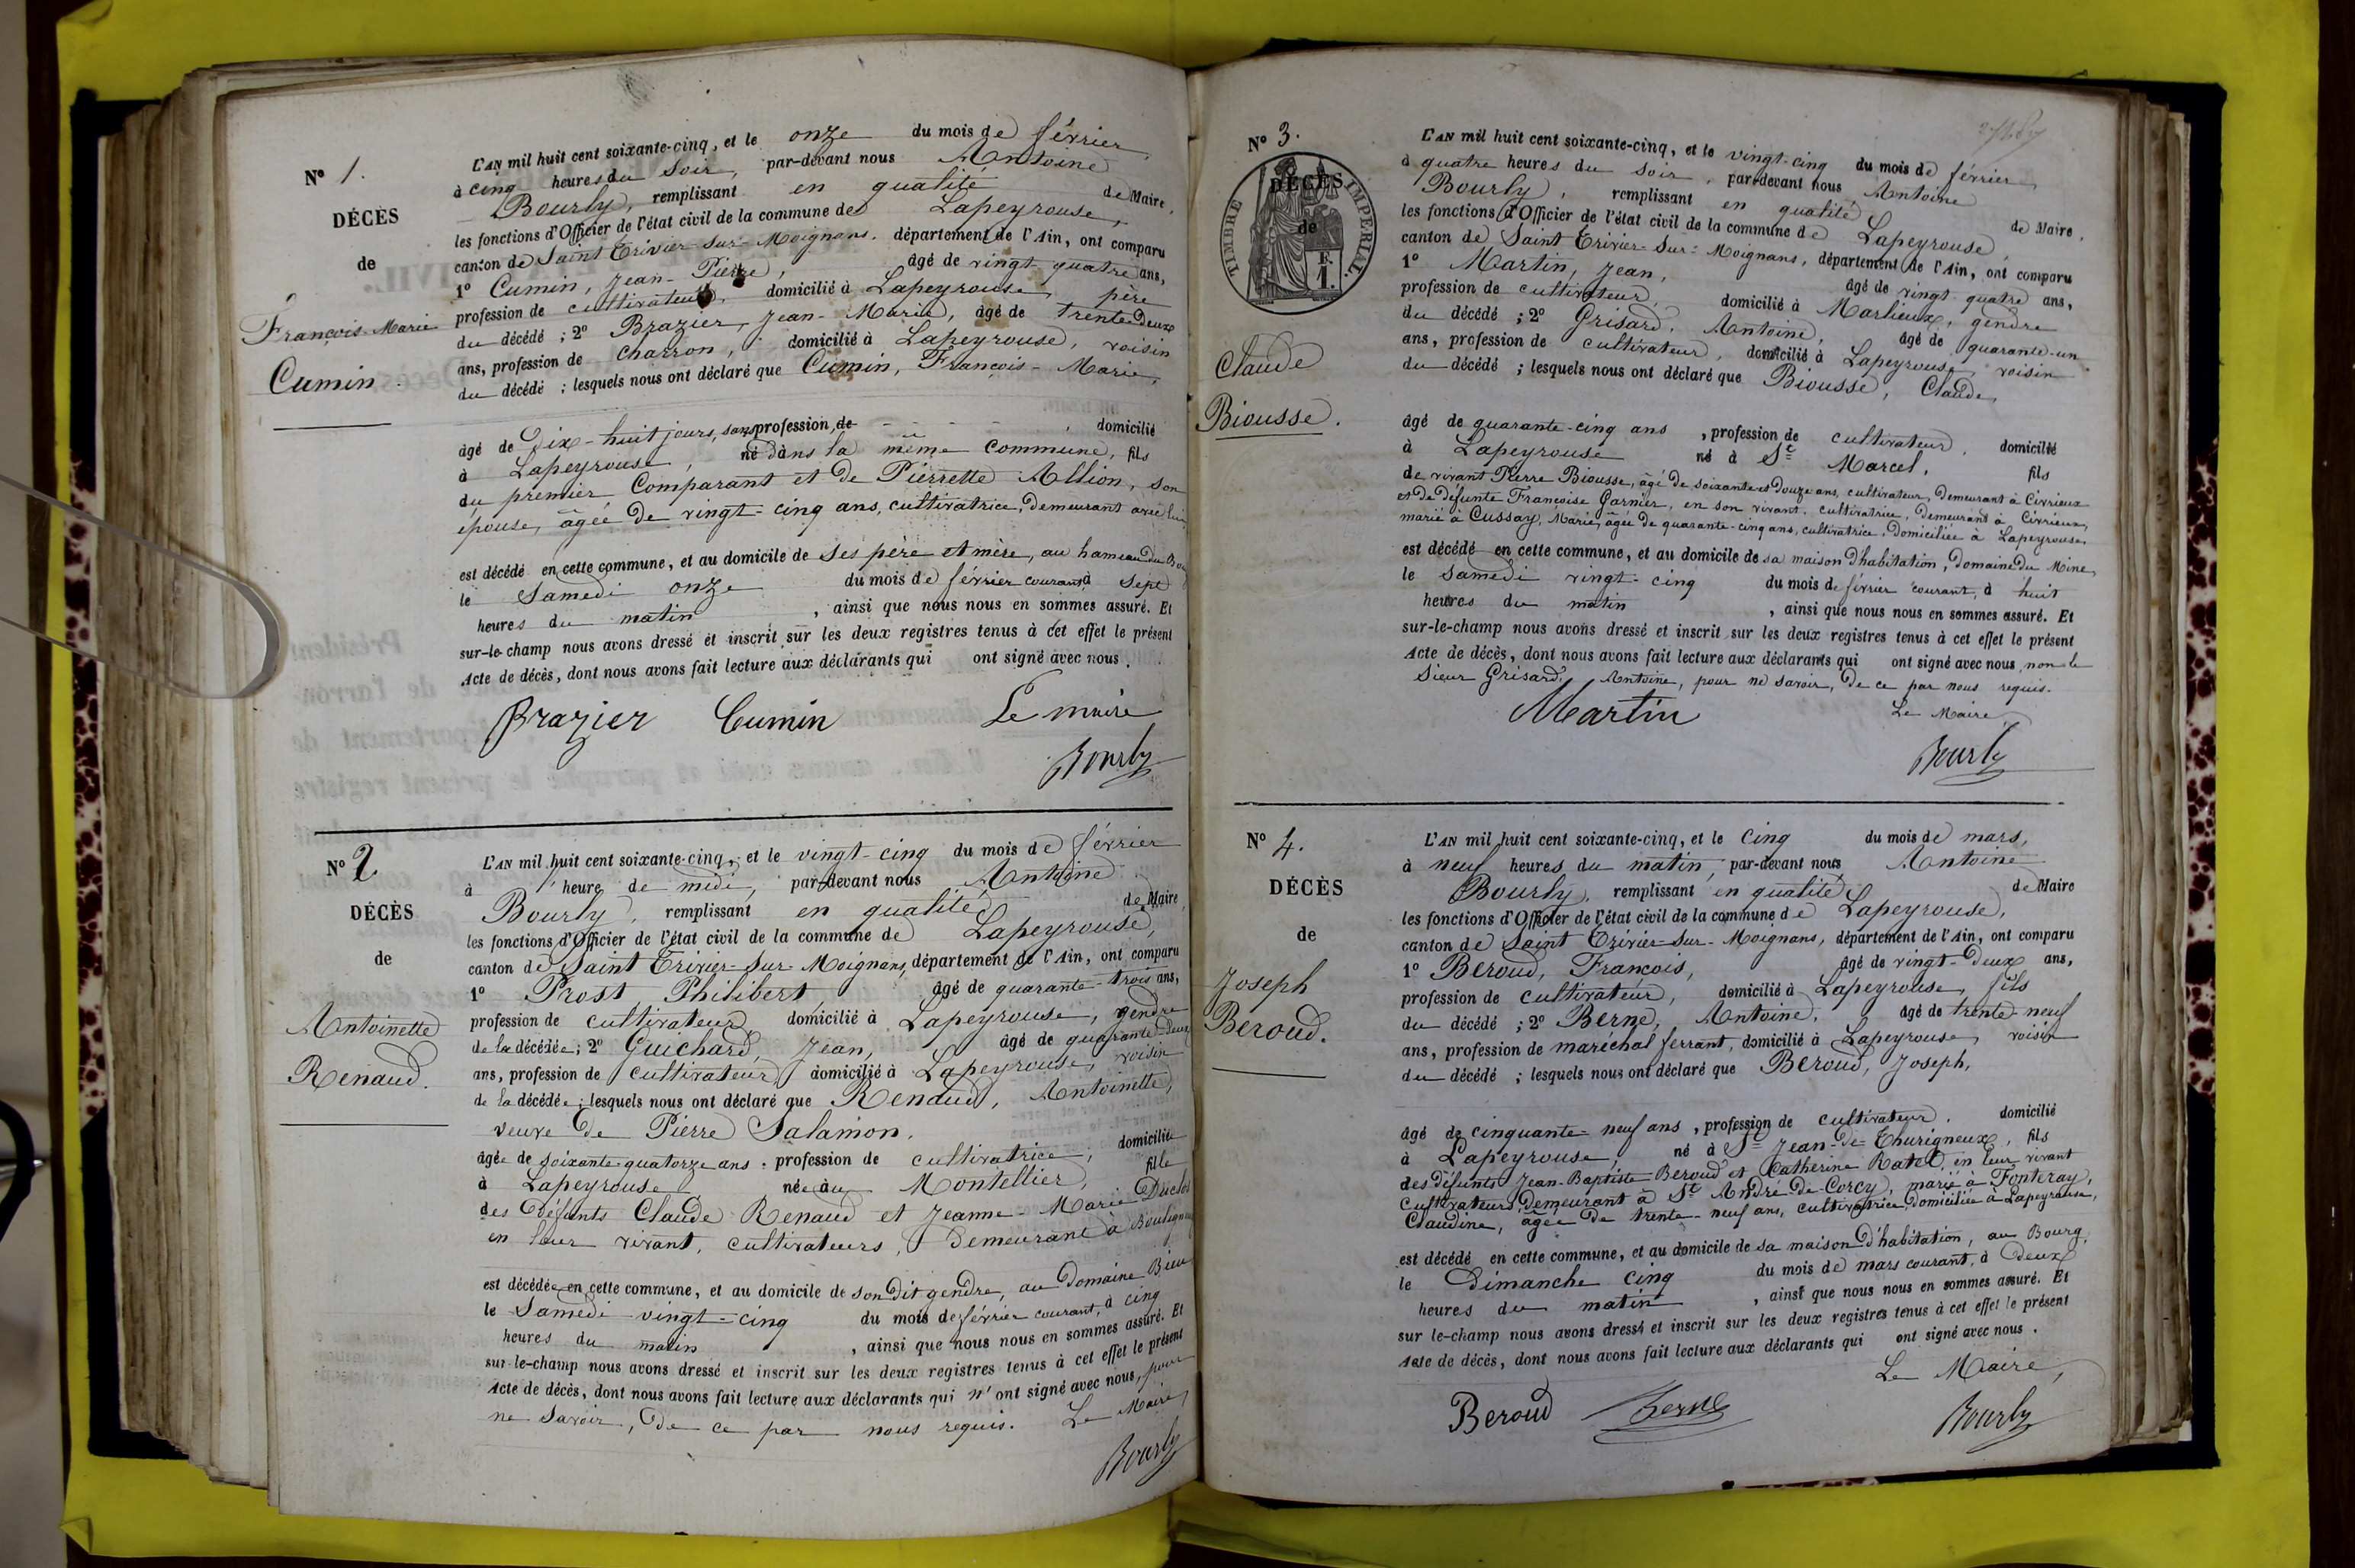 N° 1.
DÉCÈS
de
François-Marie
Cumin.
L'AN mil huit cent soixante-cinq, et le onze du mois de février,
à cinq heures du soir, par-devant nous Antoine
Bourly, remplissant en qualité de Maire,
les fonctions d'Officier de l'état civil de la commune de Lapeyrouse,
canton de Saint Trivier-sur-Moignans, département de l'Ain, ont comparu
1° Cumin, Jean-Pierre, âgé de vingt quatre ans,
profession de cultivateur, domicilié à Lapeyrouse, père
du décédé ; 2° Brazier, Jean-Marie, âgé de trente deux
ans, profession de charron, domicilié à Lapeyrouse, voisin
du décédé ; lesquels nous ont déclaré que Cumin, François-Marie,
âgé de dix-huit jours, sans profession, de domicilié
à Lapeyrouse, né dans la même commune, fils
du premier Comparant et de Pierrette Allion, son
épouse, âgée de vingt-cinq ans, cultivatrice, demeurant avec lui,
est décédé en cette commune, et au domicile de ses père et mère, au hameau du
le samedi onze du mois de février courant à sept
heures du matin, ainsi que nous nous en sommes assuré. Et
sur-le-champ nous avons dressé et inscrit sur les deux registres tenus à cet effet le présent
Acte de décès, dont nous avons fait lecture aux déclarants qui ont signé avec nous.
Brazier Cumin Le maire
Bourly
N° 2
DÉCÈS
de
Antoinette
Renaud.
L'AN mil huit cent soixante-cinq, et le vingt-cinq du mois de février
à heure de midi, par-devant nous Antoine
Bourly, remplissant en qualité de Maire,
les fonctions d'Officier de l'état civil de la commune de Lapeyrouse,
canton de Saint Trivier-sur-Moignans, département de l'Ain, ont comparu
1° Prost, Philibert, âgé de quarante-trois ans,
profession de cultivateur, domicilié à Lapeyrouse, gendre
de la décédée ; 2° Guichard, Jean, âgé de quarante-deux
ans, profession de cultivateur, domicilié à Lapeyrouse, voisin
de la décédée ; lesquels nous ont déclaré que Renaud, Antoinette,
veuve de Pierre Salamon,
âgée de soixante-quatorze ans, profession de cultivatrice, domiciliée
à Lapeyrouse, née au Montellier, fille
des défunts Claude Renaud et Jeanne-Marie Duclos
en leur vivant, cultivateurs, demeurant à
est décédée en cette commune, et au domicile de son dit gendre, au Domaine
le samedi vingt-cinq du mois de février courant, à cinq
heures du matin, ainsi que nous nous en sommes assuré. Et
sur-le-champ nous avons dressé et inscrit sur les deux registres tenus à cet effet le présent
Acte de décès, dont nous avons fait lecture aux déclarants qui n'ont signé avec nous, pour
ne savoir, de ce par nous requis. Le Maire,
Bourly
N° 3.
TIMBRE IMPERIAL.
F.
1.
DÉCÈS
de
Claude
Biousse.
L'AN mil huit cent soixante-cinq, et le vingt-cinq du mois de février,
à quatre heures du soir, par-devant nous Antoine
Bourly, remplissant en qualité de Maire,
les fonctions d'Officier de l'état civil de la commune de Lapeyrouse,
canton de Saint Trivier-sur-Moignans, département de l'Ain, ont comparu
1° Martin, Jean, âgé de vingt-quatre ans,
profession de cultivateur, domicilié à Marlieux, gendre
du décédé ; 2° Grisard, Antoine, âgé de quarante-un
ans, profession de cultivateur, domicilié à Lapeyrouse, voisin
du décédé ; lesquels nous ont déclaré que Biousse, Claude,
âgé de quarante-cinq ans, profession de cultivateur, domicilié
à Lapeyrouse né à St Marcel, fils
de vivant Pierre Biousse, âgé de soixante et douze ans, cultivateur, demeurant à Civrieux
et de défunte Françoise Garnier, en son vivant, cultivatrice, demeurant à Civrieux,
marié à Cussay, Marie, âgée de quarante-cinq ans, cultivatrice, domiciliée à Lapeyrouse,
est décédé en cette commune, et au domicile de sa maison d'habitation, Domaine du Mine,
le samedi vingt-cinq du mois de février courant, à huit
heures du matin, ainsi que nous nous en sommes assuré. Et
sur-le-champ nous avons dressé et inscrit sur les deux registres tenus à cet effet le présent
Acte de décès, dont nous avons fait lecture aux déclarants qui ont signé avec nous, non le
sieur Grisard, Antoine, pour ne savoir, de ce par nous requis.
Martin Le Maire,
Bourly
N° 4.
DÉCÈS
de
Joseph
Beroud.
L'AN mil huit cent soixante-cinq, et le cinq du mois de mars,
à neuf heures du matin, par-devant nous Antoine
Bourly, remplissant en qualité de Maire
les fonctions d'Officier de l'état civil de la commune de Lapeyrouse,
canton de Saint Trivier-sur-Moignans, département de l'Ain, ont comparu
1° Beroud, François, âgé de vingt-deux ans,
profession de cultivateur, domicilié à Lapeyrouse, fils
du décédé ; 2° Berne, Antoine, âgé de trente-neuf
ans, profession de maréchal ferrant, domicilié à Lapeyrouse, voisin
du décédé ; lesquels nous ont déclaré que Beroud, Joseph,
âgé de cinquante-neuf ans, profession de cultivateur, domicilié
à Lapeyrouse, né à St Jean-de-Thurigneux, fils
des défunts Jean-Baptiste Beroud et Catherine Ratel, en leur vivant
cultivateurs demeurant à St André-de-Corcy, marié à Fonteray,
Claudine, âgée de trente-neuf ans, cultivatrice, domiciliée à Lapeyrouse,
est décédé en cette commune, et au domicile de sa maison d'habitation, au Bourg,
le Dimanche cinq du mois de mars courant, à deux
heures du matin, ainsi que nous nous en sommes assuré. Et
sur le-champ nous avons dressé et inscrit sur les deux registres tenus à cet effet le présent
Acte de décès, dont nous avons fait lecture aux déclarants qui ont signé avec nous.
Le Maire,
Beroud Berne Bourly